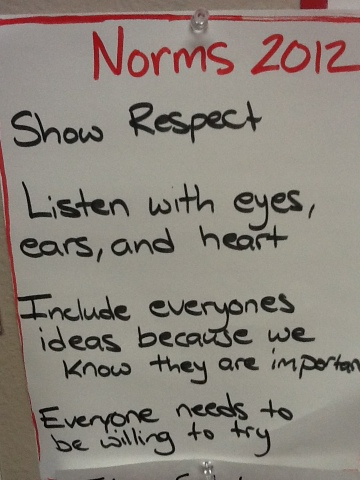 Norms 2012
Show Respect
Listen with eyes,
ears, and heart
Include everyones
ideas because we
know they are importan
Everyone needs to
be willing to try